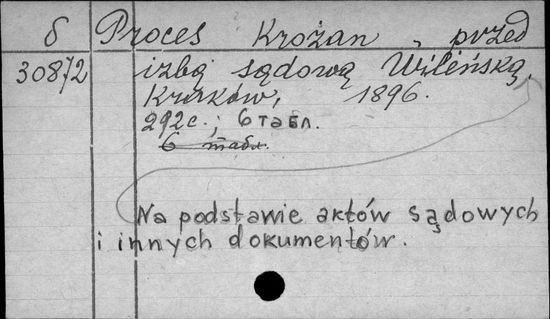 б Proces Krożan, przed
30872 izbą sądową Wileńską.
Kraków, 1896.
292с.; 6 табл.
6 табл.
Na podstawie aktów sądowych
i innych dokumentów.